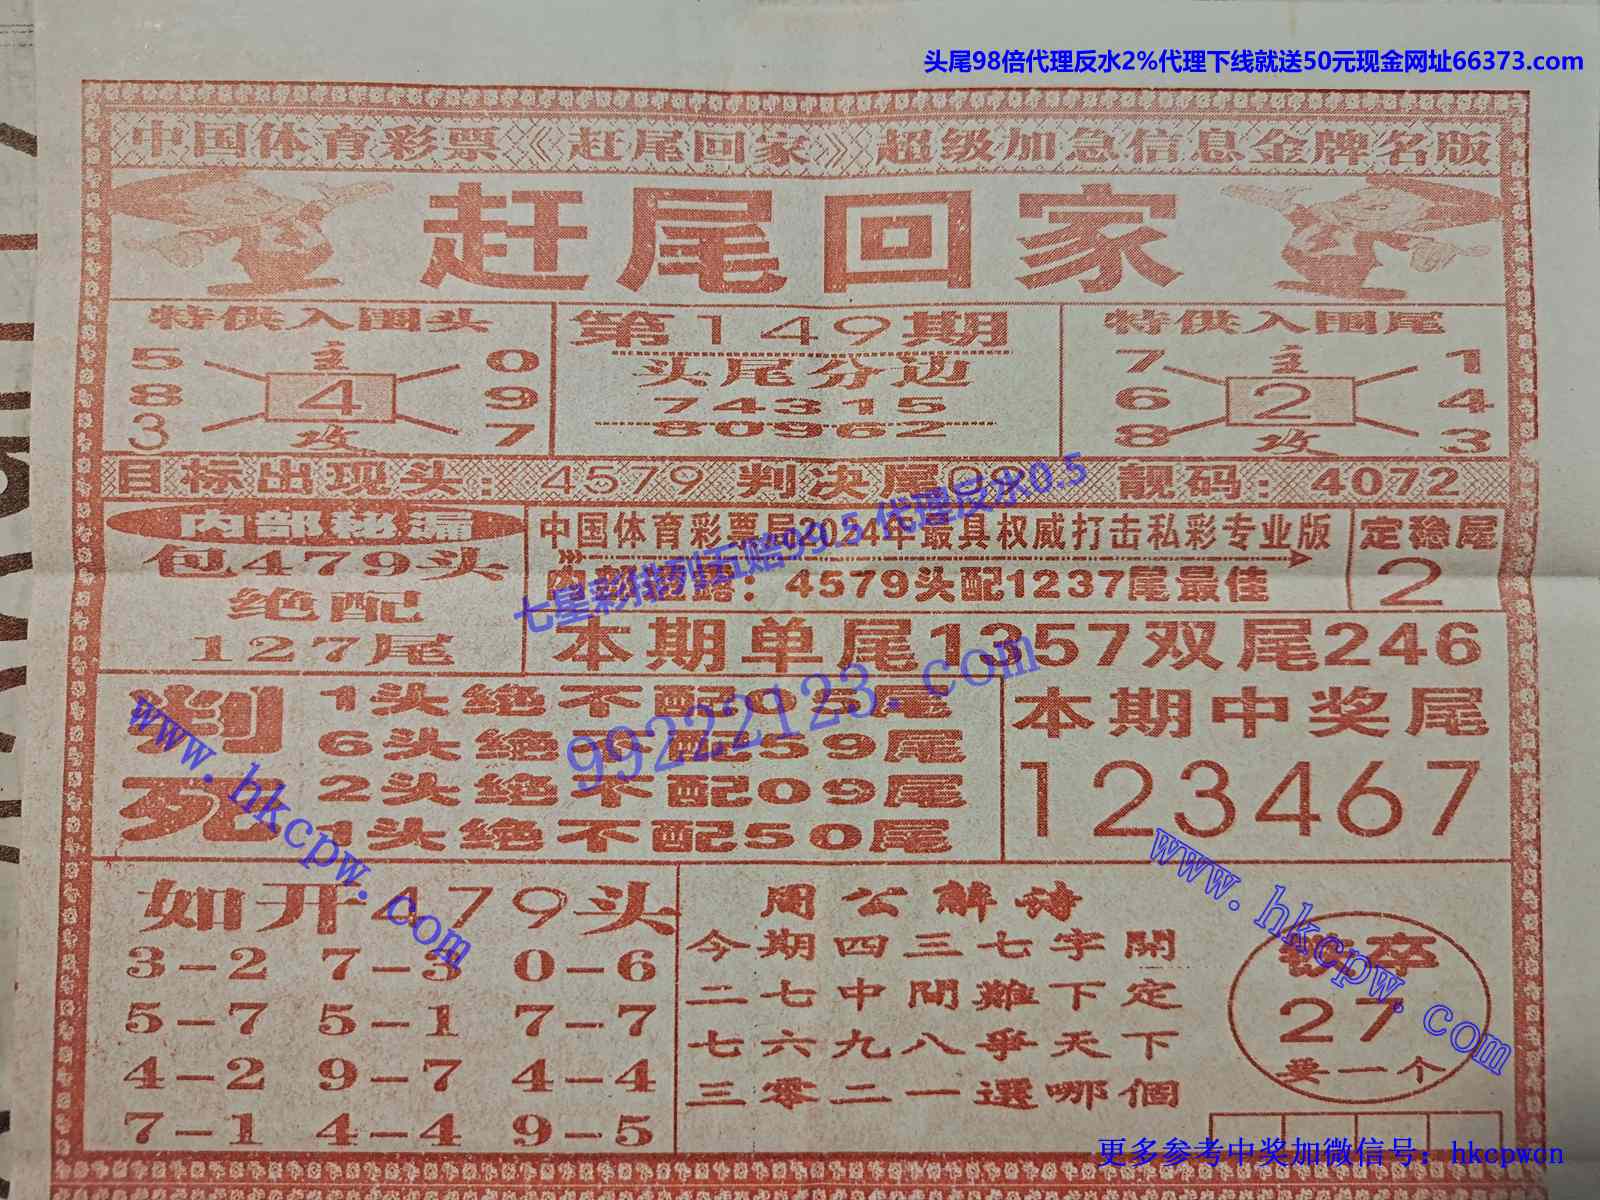 头尾98倍代理反水2%代理下线就送50元现金网址66373.com
中国体育彩票《赶尾回家》超级加急信息金牌名版
赶尾回家
特供入围头
5 主 0
8 4 9
3 攻 7
第149期
头尾分边
74315
80962
特供入围尾
7 主 1
6 2 4
8 攻 3
目标出现头：4579 判决尾 靓码：4072
内部秘漏
包479头
绝配
127尾
中国体育彩票局2024年最具权威打击私彩专业版
内部 ：4579头配1237尾最佳
定稳尾
2
七星彩排列五赔99.5 代理反水0.5
本期单尾1357双尾246
99222123.com
判死
1头绝不配05尾
6头绝不配59尾
2头绝不配09尾
1头绝不配50尾
本期中奖尾
123467
www.hkcpw.com
www.hkcpw.com
如开479头
3-2 7-3 0-6
5-7 5-1 7-7
4-2 9-7 4-4
7-1 4-4 9-5
周公解诗
今期四三七字開
二七中間難下定
七六九八爭天下
三零二一選哪個
27
要一个
更多参考中奖加微信号：hkcpwcn